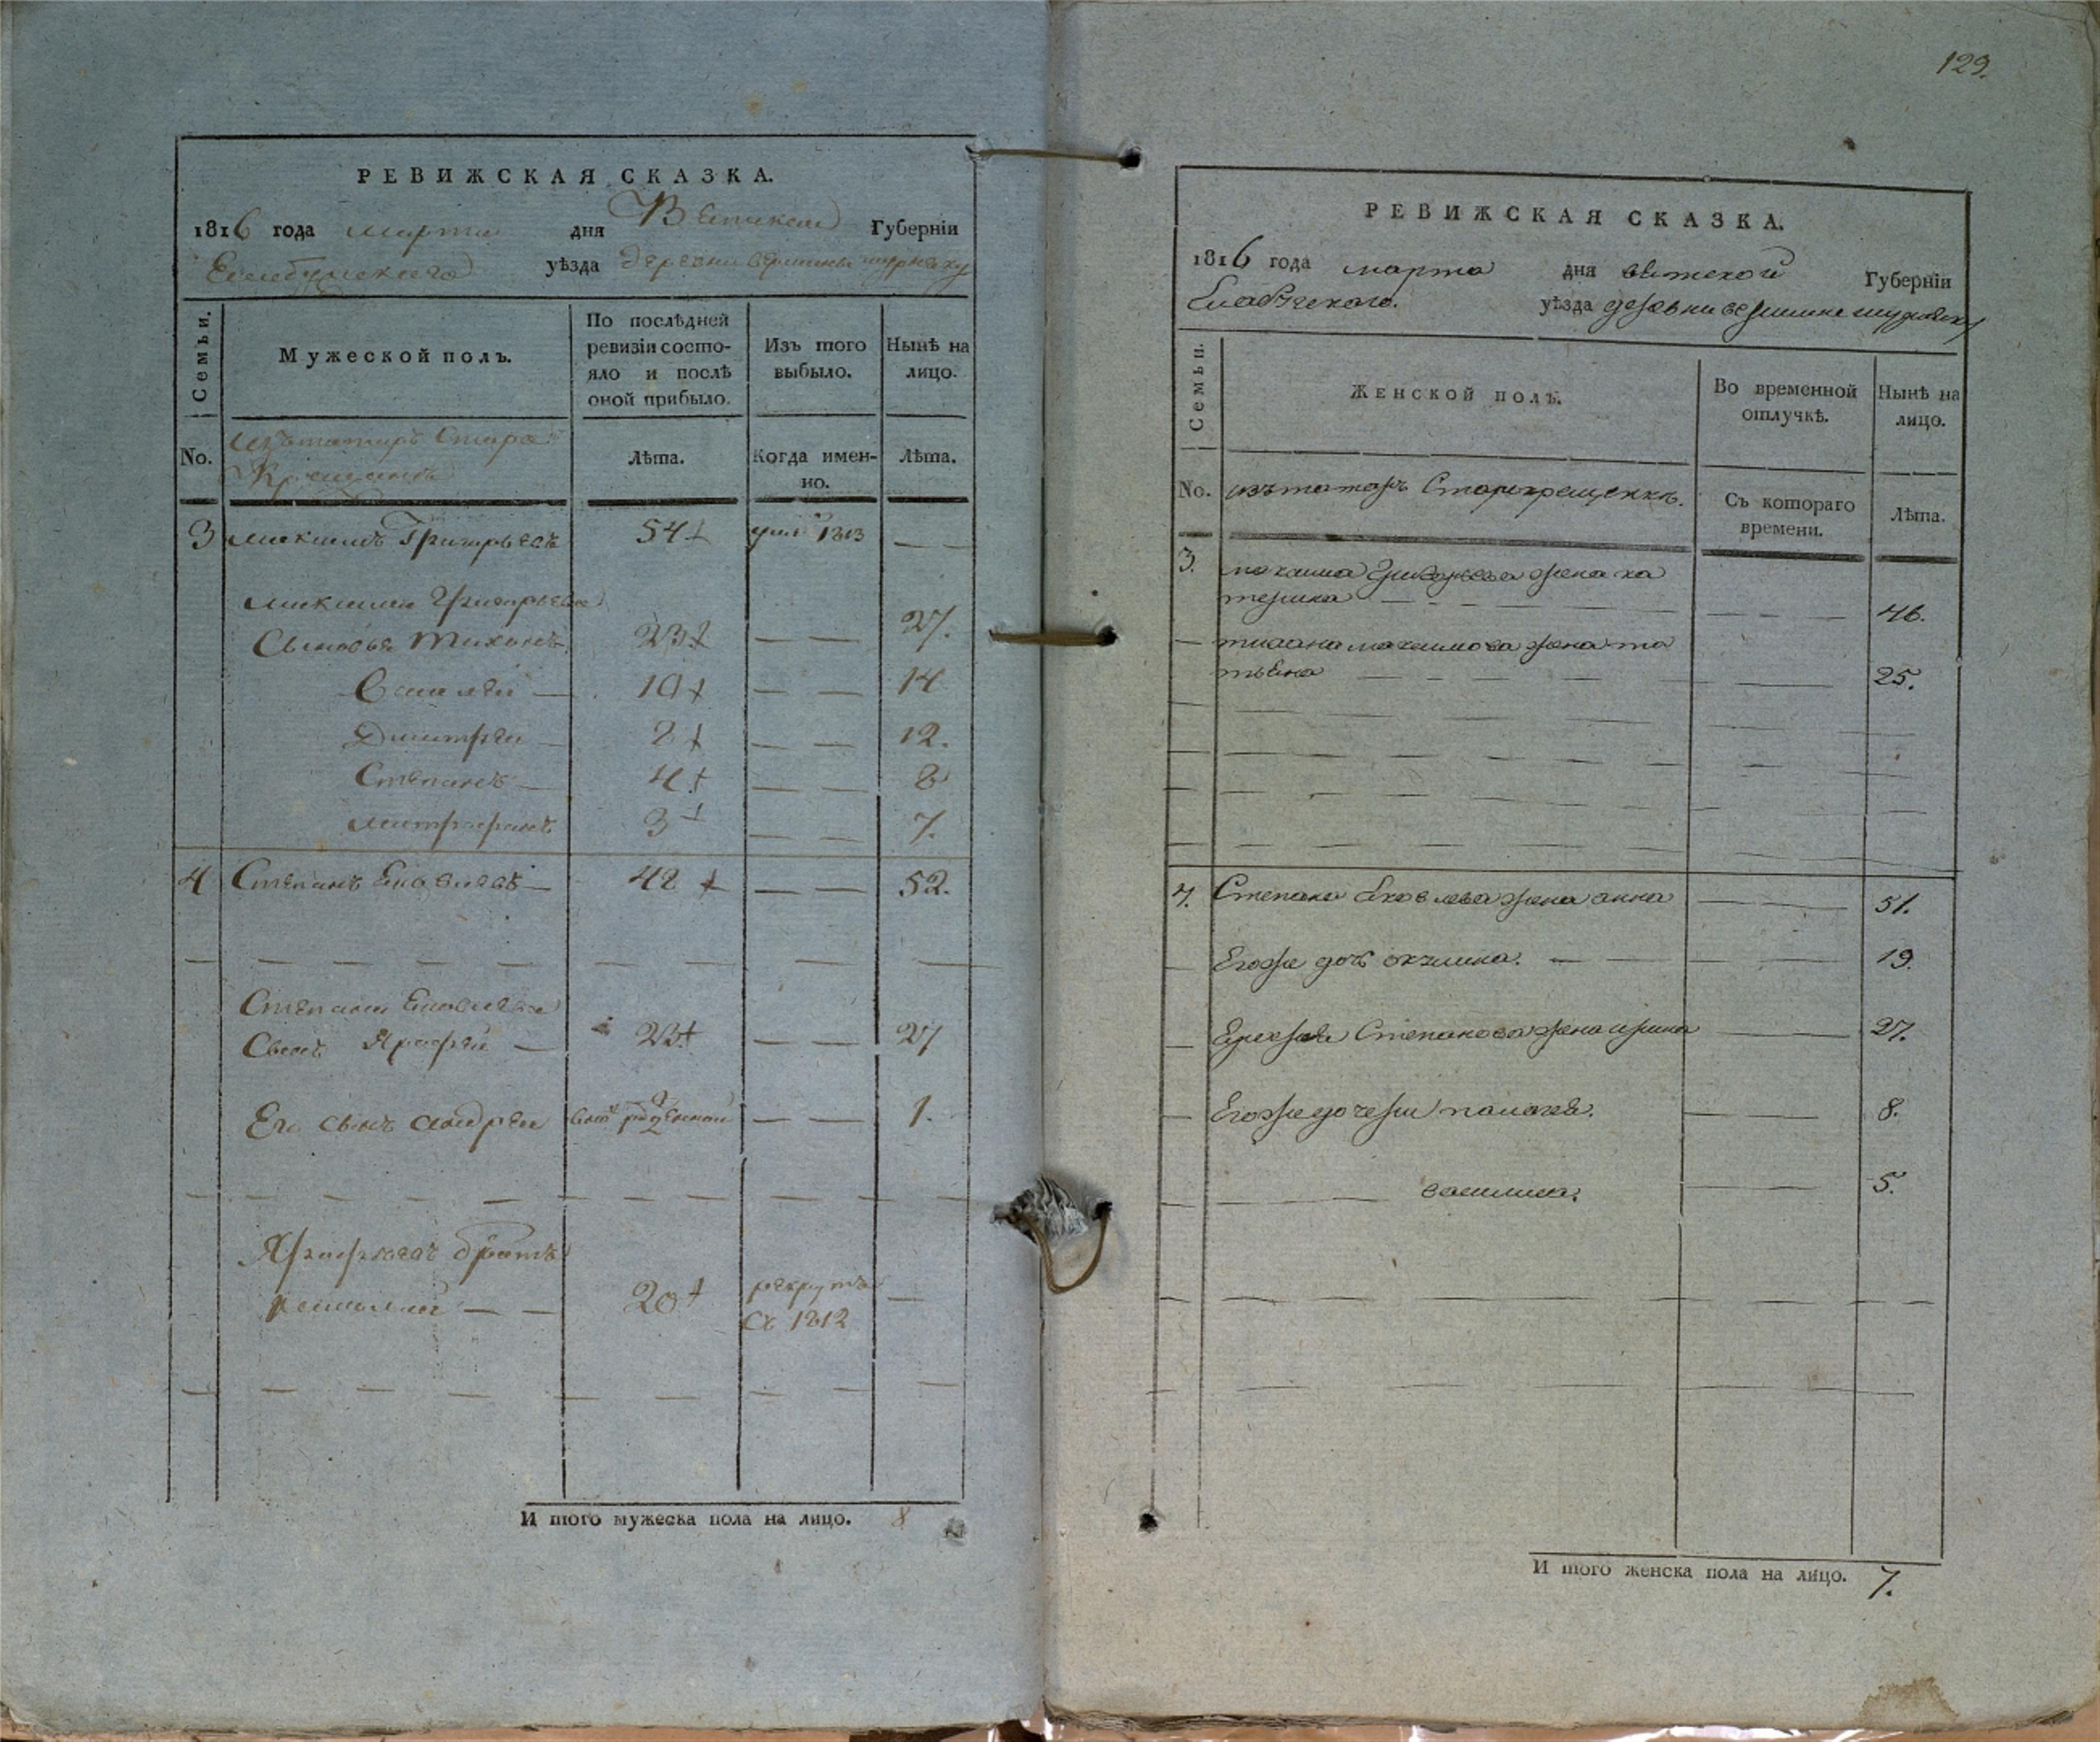 РЕВИЖСКАЯ СКАЗКА.
1816 года марта дня Вятской Губерніи
Елабужского уѣзда деревни вершины шурняку
Семьи.
Мужеской полъ.
По послѣдней ревизіи состо-
яло и послѣ
оной прибыло.
Изъ того
выбыло.
Нынѣ на
лицо.
No.
Изъ татаръ Старо
Крещенъ
Лѣта.
Когда имен-
но.
Лѣта.
3 Максимъ Григорьевъ 54 1813 — —
Максима Григорьева
Сыновья Тихонъ 23 — — 27.
Василей — 10 — — 14
Дмитрей — 8 — — 12.
Степанъ — 4 — — 8
Митрофанъ 3 — — 7.
4 Степанъ Яковлевъ — 48 — — 52.
Степана Яковлева
Сынъ Ярофей — 23 — — 27
Его сынъ Андрей рожденной — — 1.
Ярофеевъ братъ
— — 20 рекрутъ —
Съ 1812
И того мужеска пола на лицо. 8
129.
РЕВИЖСКАЯ СКАЗКА.
1816 года марта дня вятской Губерніи
Елабужского. уѣзда деревни вершины шурняку
Семьи.
Женской полъ.
Во временной
отлучкѣ.
Нынѣ на
лицо.
No. изъ татаръ Старокрещенъ.
Съ котораго
времени.
Лѣта.
3. максима Григорьева жена ка
терина — — — 46.
— тихана максимова жена та
тьяна — — — 25.
4. Степана Яковлева жена анна — — 51.
— Егоже дочь акулина. — — 19.
— Ерофея Степанова жена ирина — 27.
— Егоже дочери палагея. — 8.
— василиса. — 5.
И того женска пола на лицо. 7.